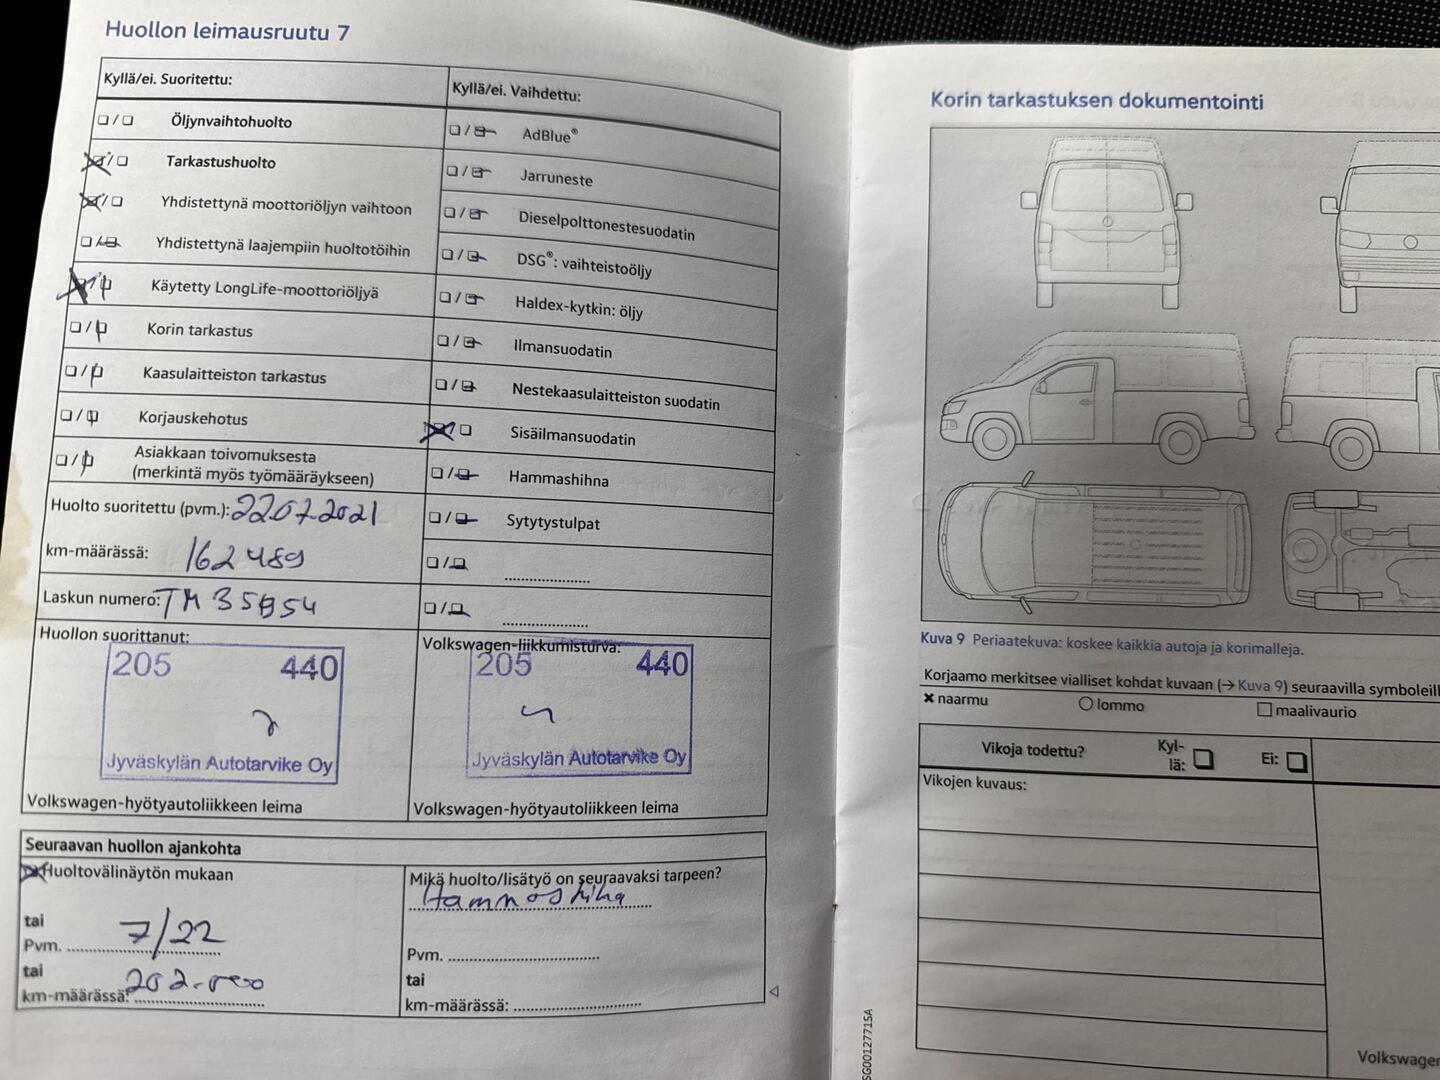 Huollon leimausruutu 7
Kyllä/ei. Suoritettu:
Öljynvaihtohuolto
Tarkastushuolto
Yhdistettynä moottoriöljyn vaihtoon
Yhdistettynä laajempiin huoltotöihin
Käytetty LongLife-moottoriöljyä
Korin tarkastus
Kaasulaitteiston tarkastus
Korjauskehotus
Asiakkaan toivomuksesta
(merkintä myös työmääräykseen)
Huolto suoritettu (pvm.): 22.07.2021
km-määrässä: 162489
Laskun numero: TM 35854
Huollon suorittanut:
205 440
Jyväskylän Autotarvike Oy
Volkswagen-hyötyautoliikkeen leima
Kyllä/ei. Vaihdettu:
AdBlue®
Jarruneste
Dieselpolttonestesuodatin
DSG®: vaihteistoöljy
Haldex-kytkin: öljy
Ilmansuodatin
Nestekaasulaitteiston suodatin
Sisäilmansuodatin
Hammashihna
Sytytystulpat
Volkswagen-liikkumisturva:
205 440
Jyväskylän Autotarvike Oy
Volkswagen-hyötyautoliikkeen leima
Seuraavan huollon ajankohta
Huoltovälinäytön mukaan
tai
Pvm. 7/22
tai
km-määrässä: 202.000
Mikä huolto/lisätyö on seuraavaksi tarpeen?
Hammashihna
Pvm.
tai
km-määrässä:
Korin tarkastuksen dokumentointi
Kuva 9 Periaatekuva: koskee kaikkia autoja ja korimalleja.
Korjaamo merkitsee vialliset kohdat kuvaan (→ Kuva 9) seuraavilla
naarmu lommo maalivaurio
Vikoja todettu? Kyl-
lä: Ei:
Vikojen kuvaus:
SG0012771SA